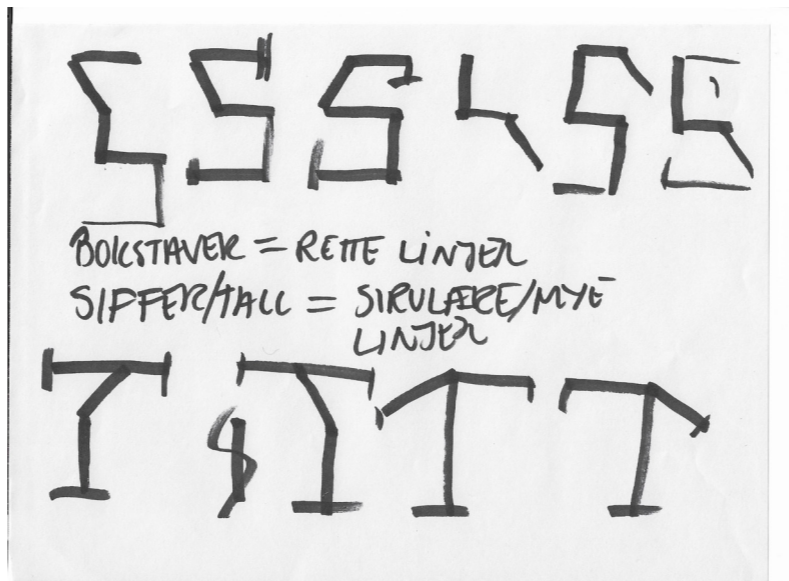 S S S S S
BOKSTAVER = RETTE LiNJER
SIFFER/TALL = SIRULÆRE/MYE
LINJER
T $ T T T